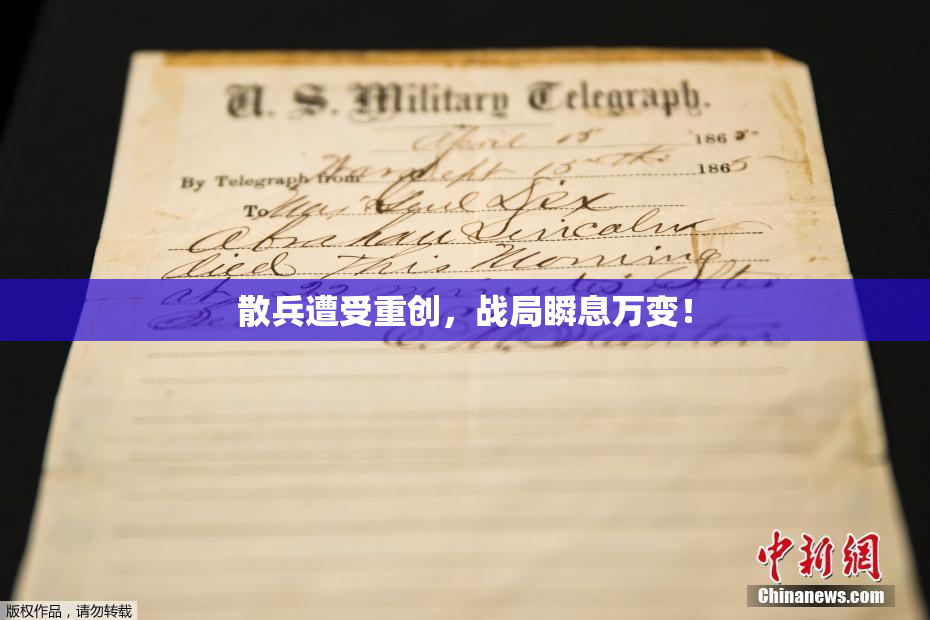 U. S. Military Telegraph.
April 15 1865
By Telegraph from War Dept 15th 1865
To Maj Genl Dix
Abraham Lincoln
died this morning
at 22 minutes after
散兵遭受重创，战局瞬息万变！
E. M. Stanton
中新网
Chinanews.com
版权作品，请勿转载